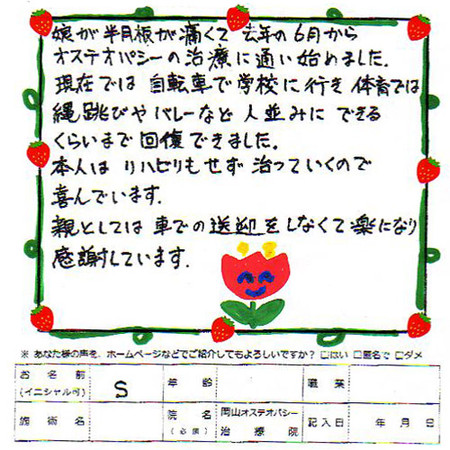 娘が半月板が痛くて去年の6月から
オステオパシーの治療に通い始めました.
現在では自転車で学校に行き体育では
縄跳びやバレーなど人並みにできる
くらいまで回復できました.
本人はリハビリもせず治っていくので
喜んでいます.
親としては車での送迎をしなくて楽になり
感謝しています.
※ あなた様の声を、ホームページなどでご紹介してもよろしいですか? □はい □匿名で □ダメ
お名前 (イニシャル可) S 年齢 職業
施術名 院名 (必須) 岡山オステオパシー治療院 記入日 年 月 日